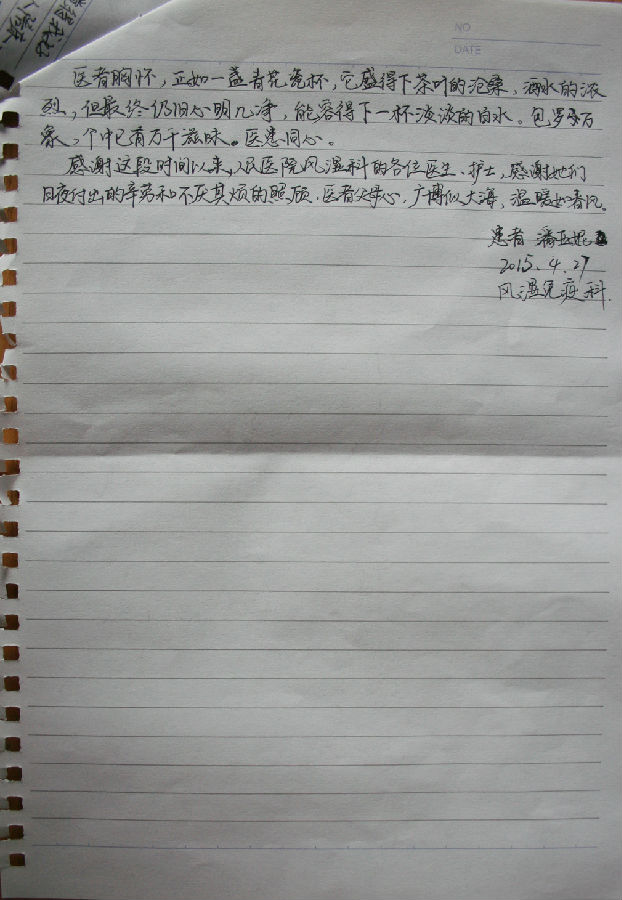 NO
DATE
医者胸怀，正如一盏青花瓷杯，它盛得下茶叶的沧桑，酒水的浓
烈，但最终仍旧心明几净，能容得下一杯淡淡的白水。包罗万
象，个中已有万千滋味。医患同心。
感谢这段时间以来，人民医院风湿科的各位医生、护士，感谢她们
日夜付出的辛劳和不厌其烦的照顾，医者父母心，广博似大海，温暖如春风。
患者 潘亚妮
2015.4.27
风湿免疫科.